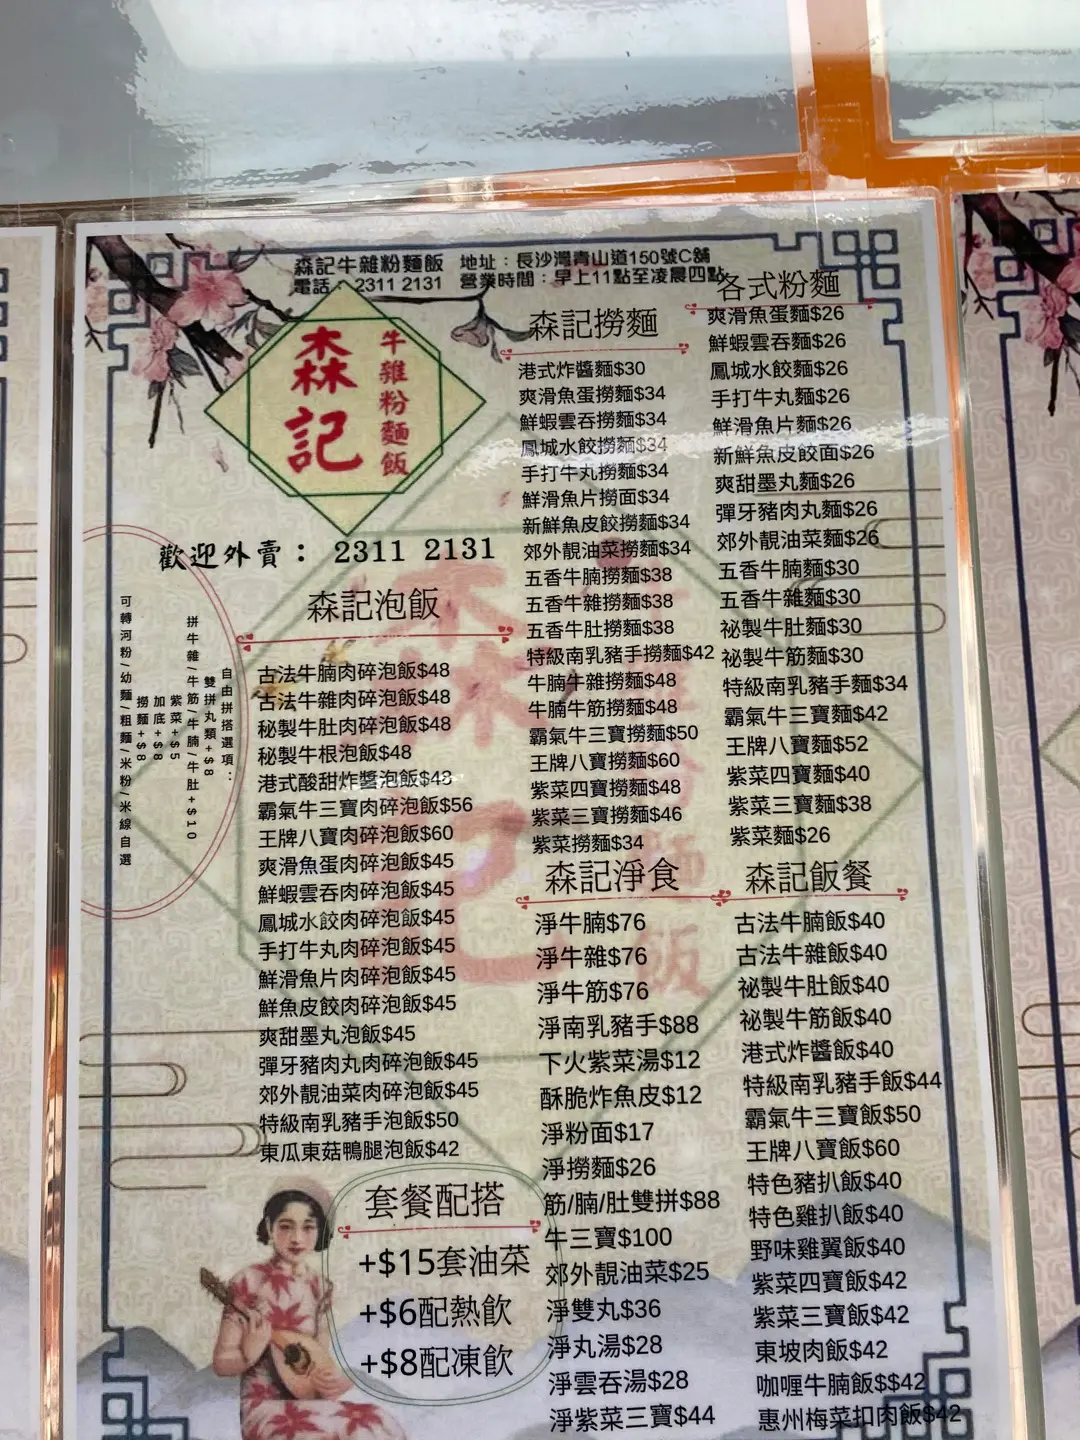 森記牛雜粉麵飯 地址：長沙灣青山道150號C舖
電話：2311 2131 營業時間：早上11點至凌晨四點
森記
牛雜粉麵飯
歡迎外賣： 2311 2131
自由拼搭選項：
雙拼丸類+$8
拼牛雜/牛筋/牛腩/牛肚+$10
紫菜+$5
加底+$8
撈麵+$8
可轉河粉/幼麵/粗麵/米粉/米線自選
森記泡飯
古法牛腩肉碎泡飯$48
古法牛雜肉碎泡飯$48
秘製牛肚肉碎泡飯$48
秘製牛根泡飯$48
港式酸甜炸醬泡飯$48
霸氣牛三寶肉碎泡飯$56
王牌八寶肉碎泡飯$60
爽滑魚蛋肉碎泡飯$45
鮮蝦雲吞肉碎泡飯$45
鳳城水餃肉碎泡飯$45
手打牛丸肉碎泡飯$45
鮮滑魚片肉碎泡飯$45
鮮魚皮餃肉碎泡飯$45
爽甜墨丸泡飯$45
彈牙豬肉丸肉碎泡飯$45
郊外靚油菜肉碎泡飯$45
特級南乳豬手泡飯$50
東瓜東菇鴨腿泡飯$42
套餐配搭
+$15套油菜
+$6配熱飲
+$8配凍飲
森記撈麵
港式炸醬麵$30
爽滑魚蛋撈麵$34
鮮蝦雲吞撈麵$34
鳳城水餃撈麵$34
手打牛丸撈麵$34
鮮滑魚片撈面$34
新鮮魚皮餃撈麵$34
郊外靚油菜撈麵$34
五香牛腩撈麵$38
五香牛雜撈麵$38
五香牛肚撈麵$38
特級南乳豬手撈麵$42
牛腩牛雜撈麵$48
牛腩牛筋撈麵$48
霸氣牛三寶撈麵$50
王牌八寶撈麵$60
紫菜四寶撈麵$48
紫菜三寶撈麵$46
紫菜撈麵$34
森記淨食
淨牛腩$76
淨牛雜$76
淨牛筋$76
淨南乳豬手$88
下火紫菜湯$12
酥脆炸魚皮$12
淨粉面$17
淨撈麵$26
筋/腩/肚雙拼$88
牛三寶$100
郊外靚油菜$25
淨雙丸$36
淨丸湯$28
淨雲吞湯$28
淨紫菜三寶$44
各式粉麵
爽滑魚蛋麵$26
鮮蝦雲吞麵$26
鳳城水餃麵$26
手打牛丸麵$26
鮮滑魚片麵$26
新鮮魚皮餃面$26
爽甜墨丸麵$26
彈牙豬肉丸麵$26
郊外靚油菜麵$26
五香牛腩麵$30
五香牛雜麵$30
祕製牛肚麵$30
祕製牛筋麵$30
特級南乳豬手麵$34
霸氣牛三寶麵$42
王牌八寶麵$52
紫菜四寶麵$40
紫菜三寶麵$38
紫菜麵$26
森記飯餐
古法牛腩飯$40
古法牛雜飯$40
祕製牛肚飯$40
祕製牛筋飯$40
港式炸醬飯$40
特級南乳豬手飯$44
霸氣牛三寶飯$50
王牌八寶飯$60
特色豬扒飯$40
特色雞扒飯$40
野味雞翼飯$40
紫菜四寶飯$42
紫菜三寶飯$42
東坡肉飯$42
咖喱牛腩飯$$42
惠州梅菜扣肉飯$42